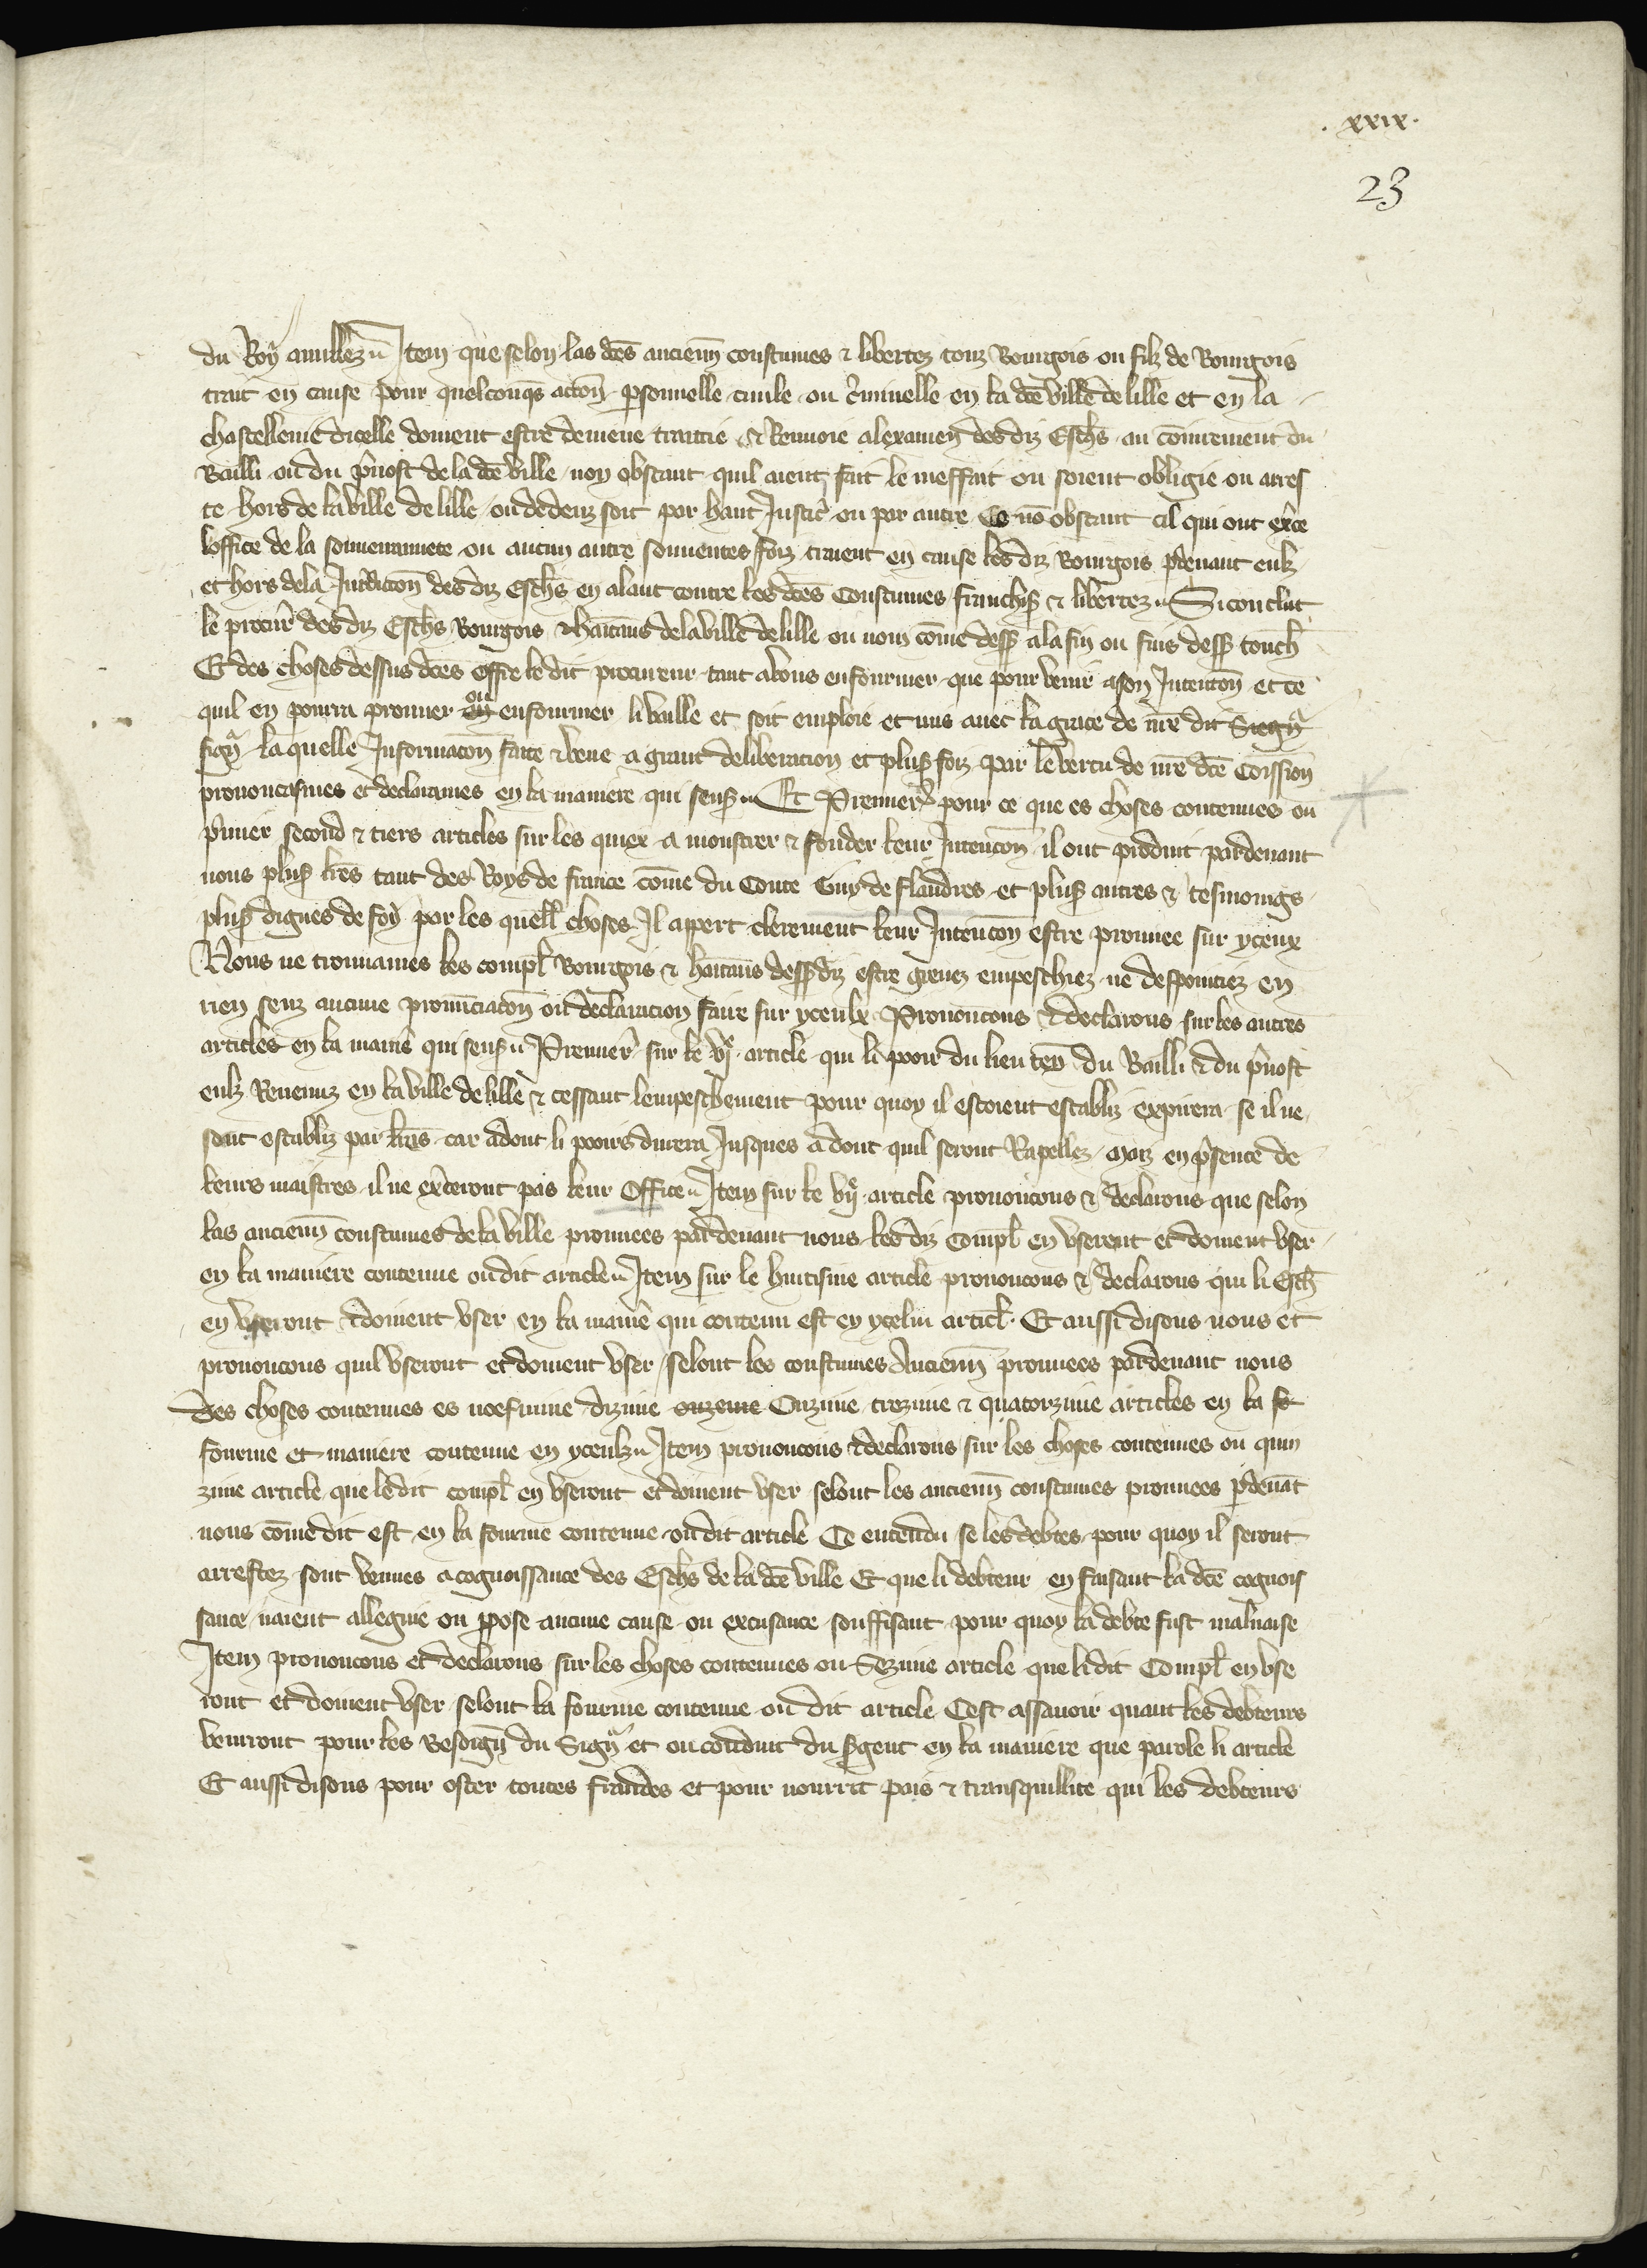 .xxix.
23
du Roy anullez Item que selon las dc̄es ancienn̄ coustumes & libertez touz Bourgois ou filz de Bourgois
trait en cause pour quelconqs actōn psonnelle ciuile ou c̓minelle en la dc̄e ville de lille et en la
chastellenie dicelle doiuent estre demene traitie & Renuoie alexamen des diz Esch̄s au cōuirement du
Bailli ou du p̓uost de la dc̄e ville noy obstant quil aient fait le meffait ou soient obligie ou arres
te hors de la ville de lille ou dedenz soit par haut Justic̓ ou par autre Ce nō obstant cil qui ont ex̓ce
loffice de la souuerainnete ou aucun autre souuentes foiz traient en cause les diz Bourgois p̱deuant eulz
et hors de la Jurdictōn des diz Esch̄s en alant contre les dc̄es Coustumes franchis̱ & libertez Si conclut
le procur̓ des diz Esch̄s Bourgois & h̄aitāns de la ville de lille ou nom cōme dess̱ ala fin ou fins dess̱ touch̄
Et des choses dessus dc̄es offre le dit procureur tant a vous enfourmer que pour venir a son Intentōn et ce
quil en pourra prouuer ou enfourmer li vaille et soit emploie et mis auec la grace de nr̄e dit Siegn̓
sign̓ la quelle Informacōn faite & veue a grant deliberacion et pluss̱ foiz par le vertu de nr̄e dc̄e Com̄ission
prononcasmes et declarames en la maniere qui sens̱ Et Premier̓ pour ce que es choses contenues ou
p̓mier second & tiers articles sur les quiex a monstrer & fonder leur Intencōn il ont produit pardeuant
nous pluss̱ lr̄es tant des Roys de france cōme du Conte Guy de flandres et pluss̱ autres & tesmoings
pluss̱ dignes de foy par les quell̄ choses Il appert clerement leur Intencōn estre prouuee sur yceux
Nous ne trouuames les compl̄ Bourgois & h̄aitāns dess̱diz estre greuez empeschiez ne despointiez en
rien senz aucune pronūciacōn ou declaracion faire sur yceulx Prononcons & declarons sur les autres
articles en la manie̓ qui sens̱ Premier̓ sur le vje article qui li pooir du lieu ten̄ du Bailli & du p̓uost
eulz Reuenuz en la ville de lille & cessant lempeschement pour quoy il estoient establiz expirera se il ne
sont establiz par lr̄es car adont li pooirs durera Jusques adont quil seront Rapellez Maiz en p̓sence de
leurs maistres il ne ex̓ceront pas leur Office Item sur le vije article prononcons & declarons que selon
las ancienn̄ coustumes de la ville prouuees pardeuant nous les diz Compl̄ en vserent et doiuent vser
en la maniere contenue oudit article Item sur le huitisme article prononcons & declarons qui li Esch̄
en vseront & doiuent vser en la manie̓ qui contenu est en ycelui articl̄ Et aussi disons nous et
prononcons quil vseront et doiuent vser selont les coustumes Ancienn̄ prouuees pardeuant nous
des choses contenues es noefuime dizime onzeme Onzime trezime & quatorzime articles en la fo
fourme et maniere contenue en yceulz Item prononcons & declarons sur les choses contenues ou quin
zime article que ledit compl̄ en vseront et doiuent vser selont les ancienn̄ coustumes prouuees p̱deuāt
nous cōme dit est en la fourme contenue oudit article Ce entendu se les debtes pour quoy il seront
arrestez sont venues a cognoissance des Esch̄s de la dc̄e ville Et que li debteur en faisant la dc̄e cognois
sance naient allegue ou p̱pose aucune cause ou excusance souffisant pour quoy la debte fust maluaise
Item prononcons et declarons sur les choses contenues ou Sezime article que lidit Compl̄ en vse
ront et doiuent vser selont la fourme contenue ou dit article Cest assauoir quant les debteurs
venront pour les Besoign̄ du Sign̓ et ou conduit du s̱gent en la maniere que parole li article
Et aussi disons pour oster toutes fraudes et pour nourrir pais & transquillite qui les debteurs